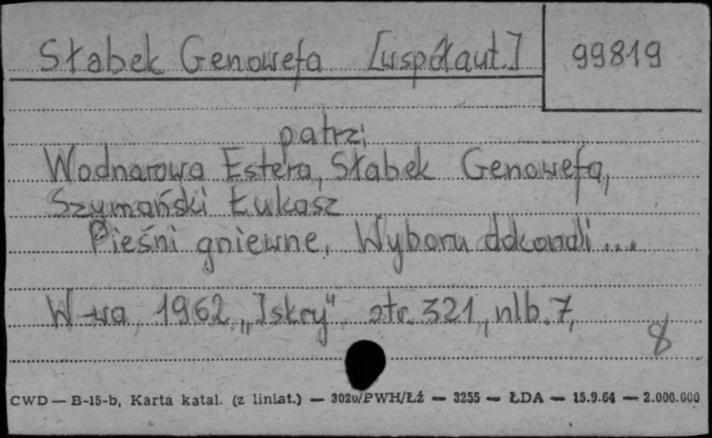 Słabek Genowefa [współaut.] 99819
patrz:
Wodnarowa Estera, Słabek Genowefa,
Szymański Łukasz
Pieśni gniewne. Wyboru dokonali...
W-wa 1962 „Iskry" str. 321, nlb. 7,
8
CWD — B-15-b, Karta katal. (z liniat.) — 3020/PWH/Łź — 3255 — ŁDA — 15.9.64 — 2.000.000